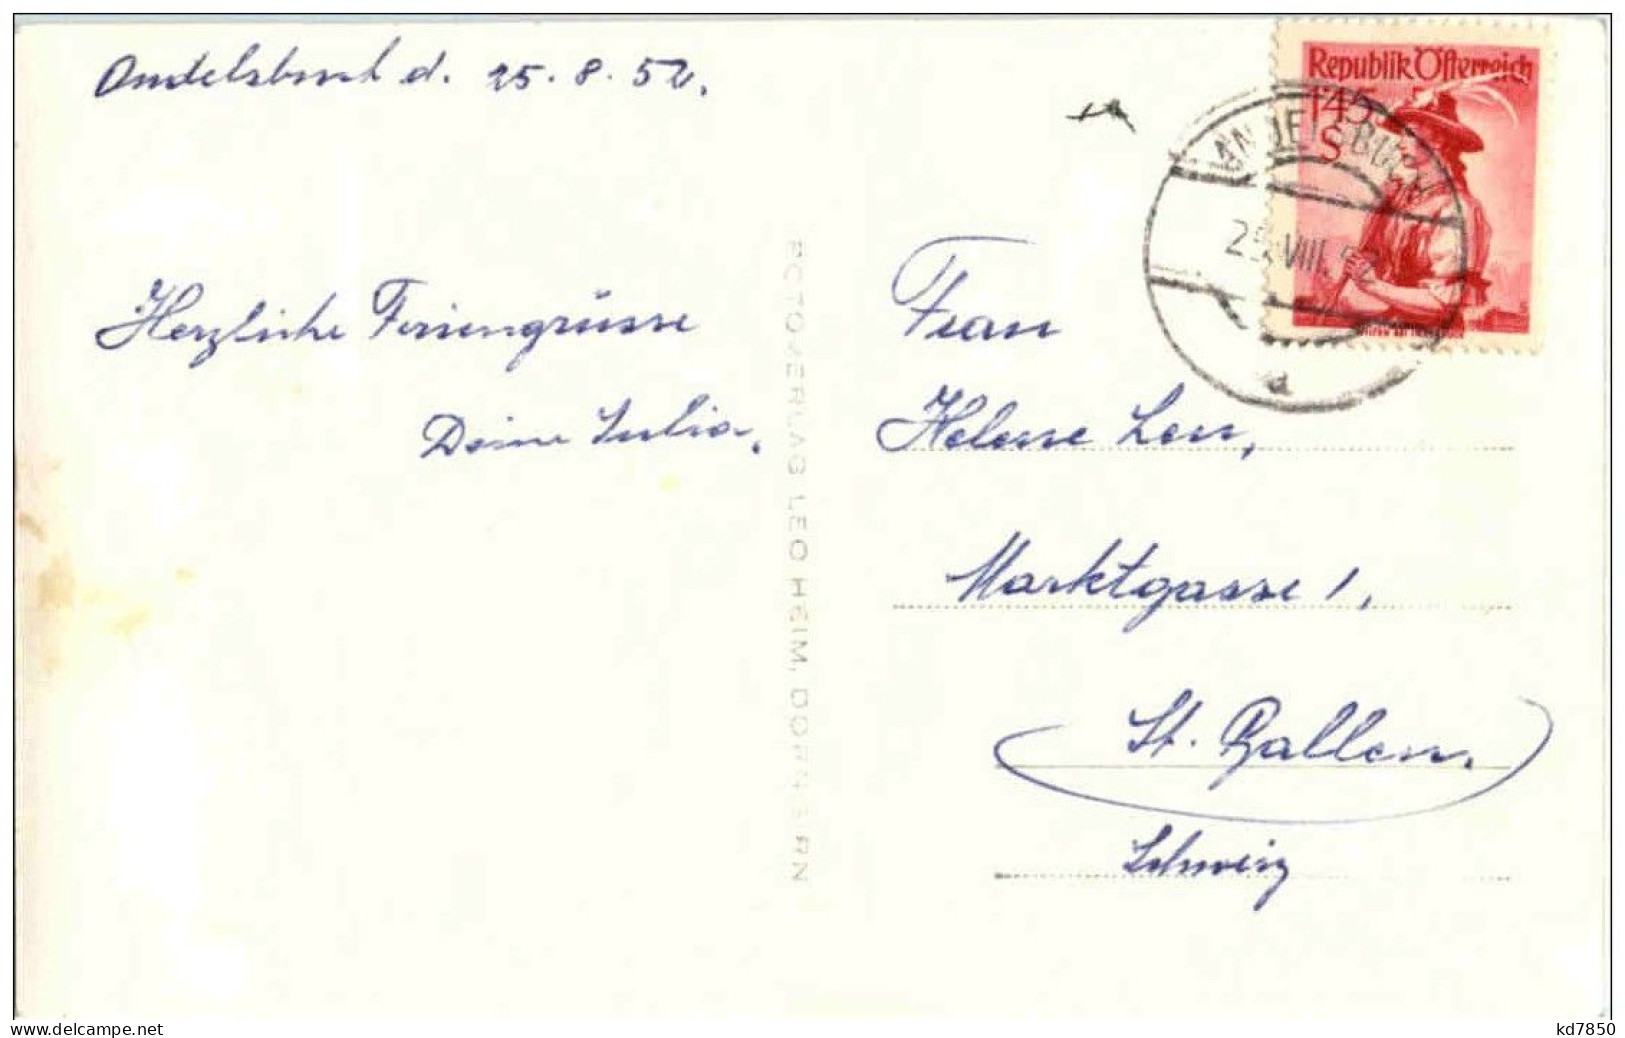 Andelsbuch d. 25. 8. 52.
Herzliche Feriengrüsse
Deine Julia.
FOTOVERLAG LEO HEIM, DORNBIRN
Republik Österreich
1'45
S
ANDELSBUCH
25.VIII.52
a
Frau
Helene Len,
Marktgasse 1,
St. Gallen.
Schweiz
www.delcampe.net
kd7850